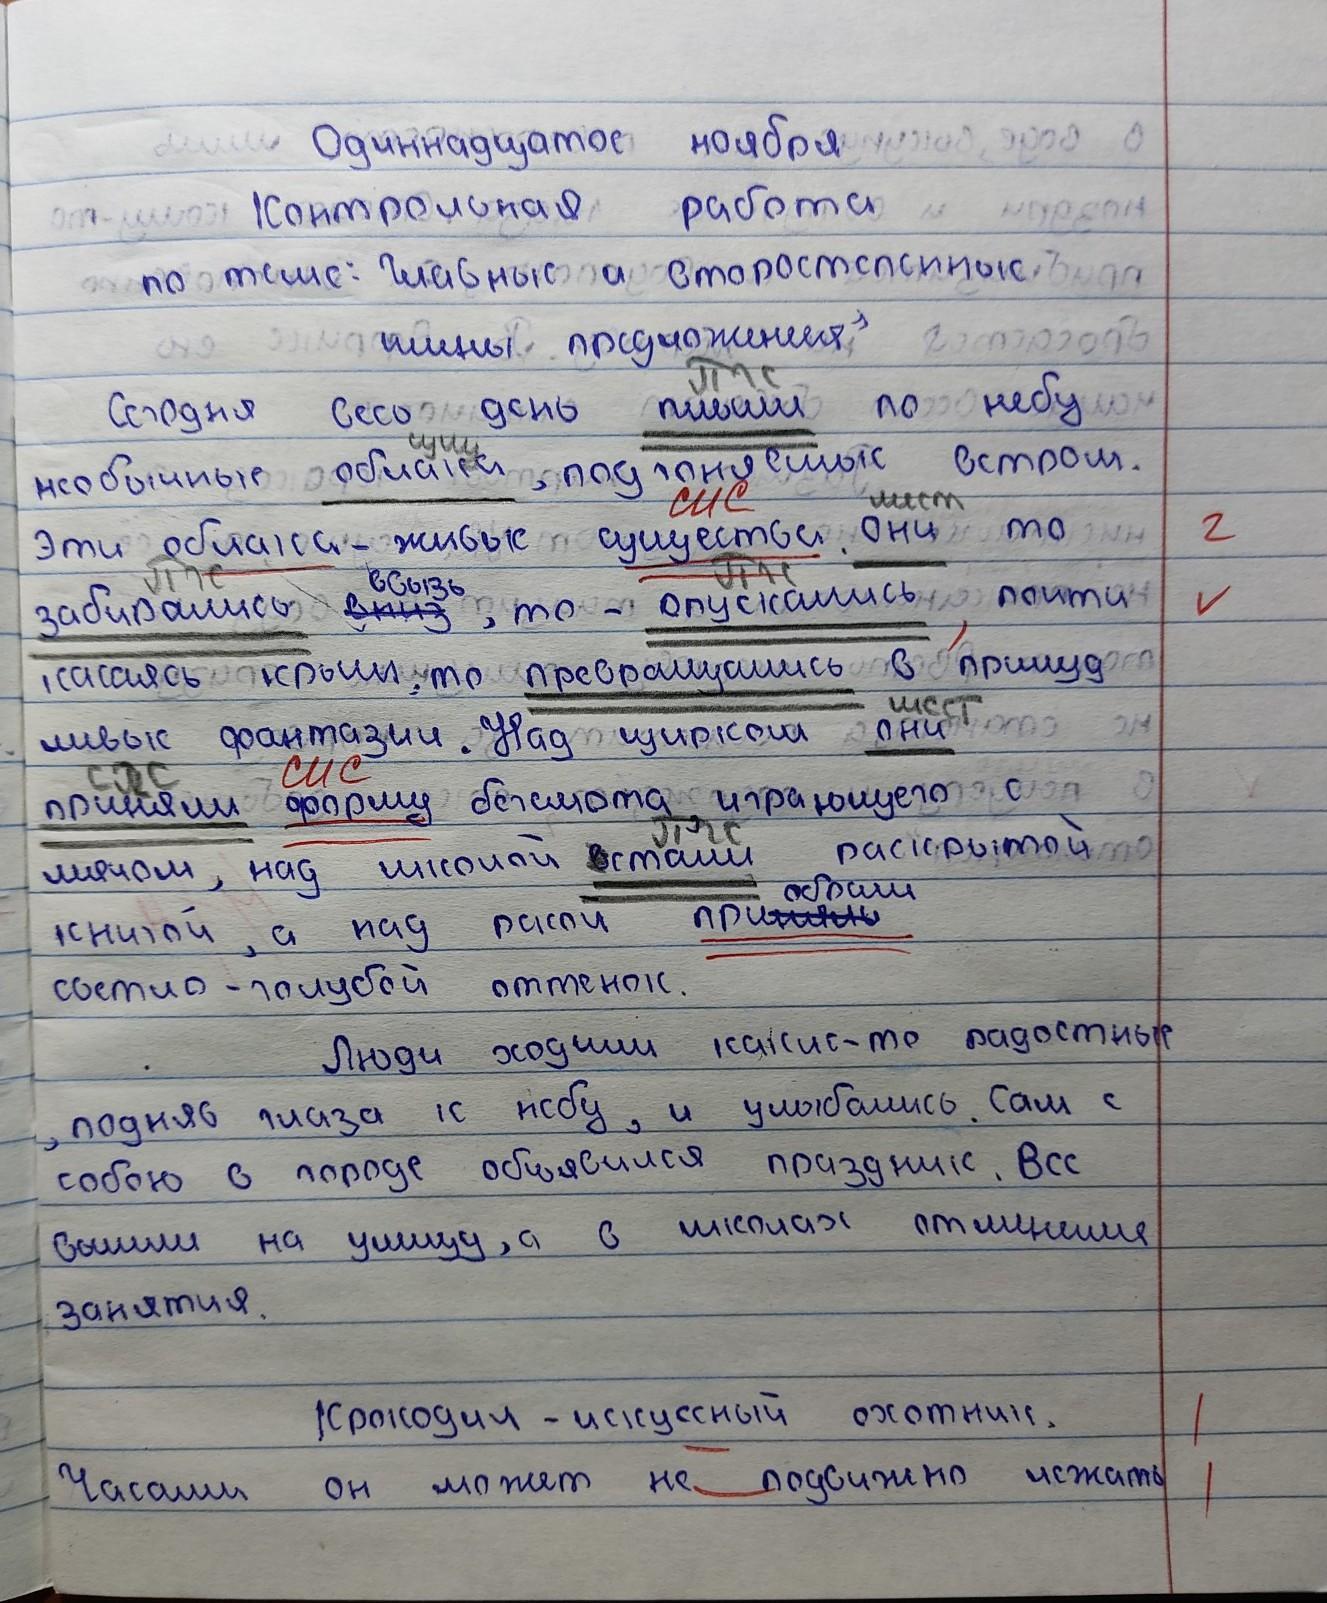 Одиннадцатое ноября
Контрольная работа
по теме: Главные и второстепенные
члены предложения"
ПГС
Сегодня весь день плыли по небу
сущ
необычные облака, подгоняемые ветром.
СИС мест
Эти облака - живые существа. Они то 2
ПГС ввызь ПГС
забирались вниз, то - опускались, почти √
касаясь крыш, то превращались в причуд
мест
ливые фантазии. Над цирком они
СГС СИС
приняли форму бегемота, играющего с
ПГС
мячом, над школой стали раскрытой
обрали
книгой, а над рекой приняли
светло-голубой оттенок.
Люди ходили какие-то радостные
, подняв глаза к небу, и улыбались. Сам с
собою в городе объявился праздник. Все
вышли на улицу, а в школах отменили
занятия.
Крокодил - искуссный охотник. |
Часами он может не подвижено лежать |